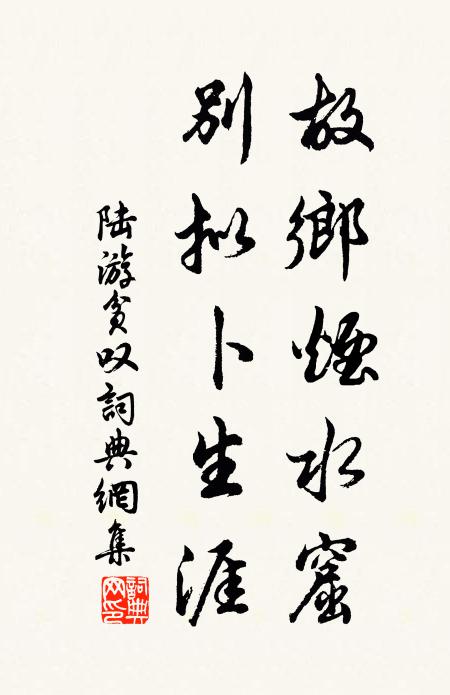 故鄉煙水窟
別拟卜生涯
陆游貧叹詞典網集
詞典網印